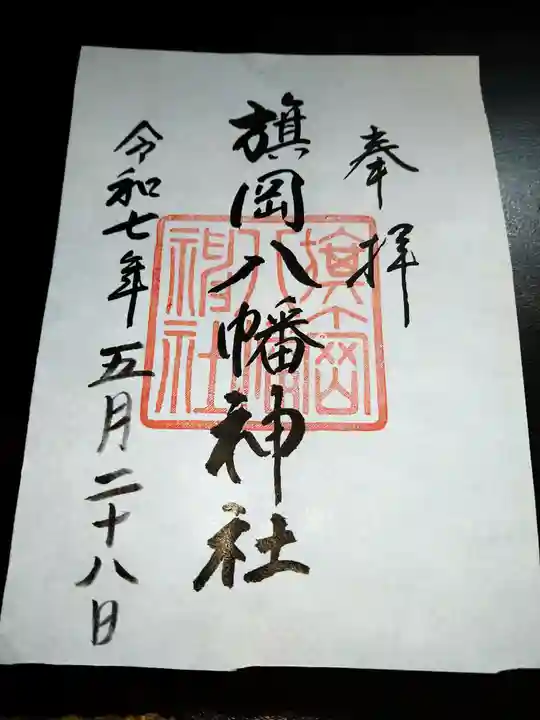 奉拝
旗岡八幡神社
旗岡八幡神社
令和七年五月二十八日